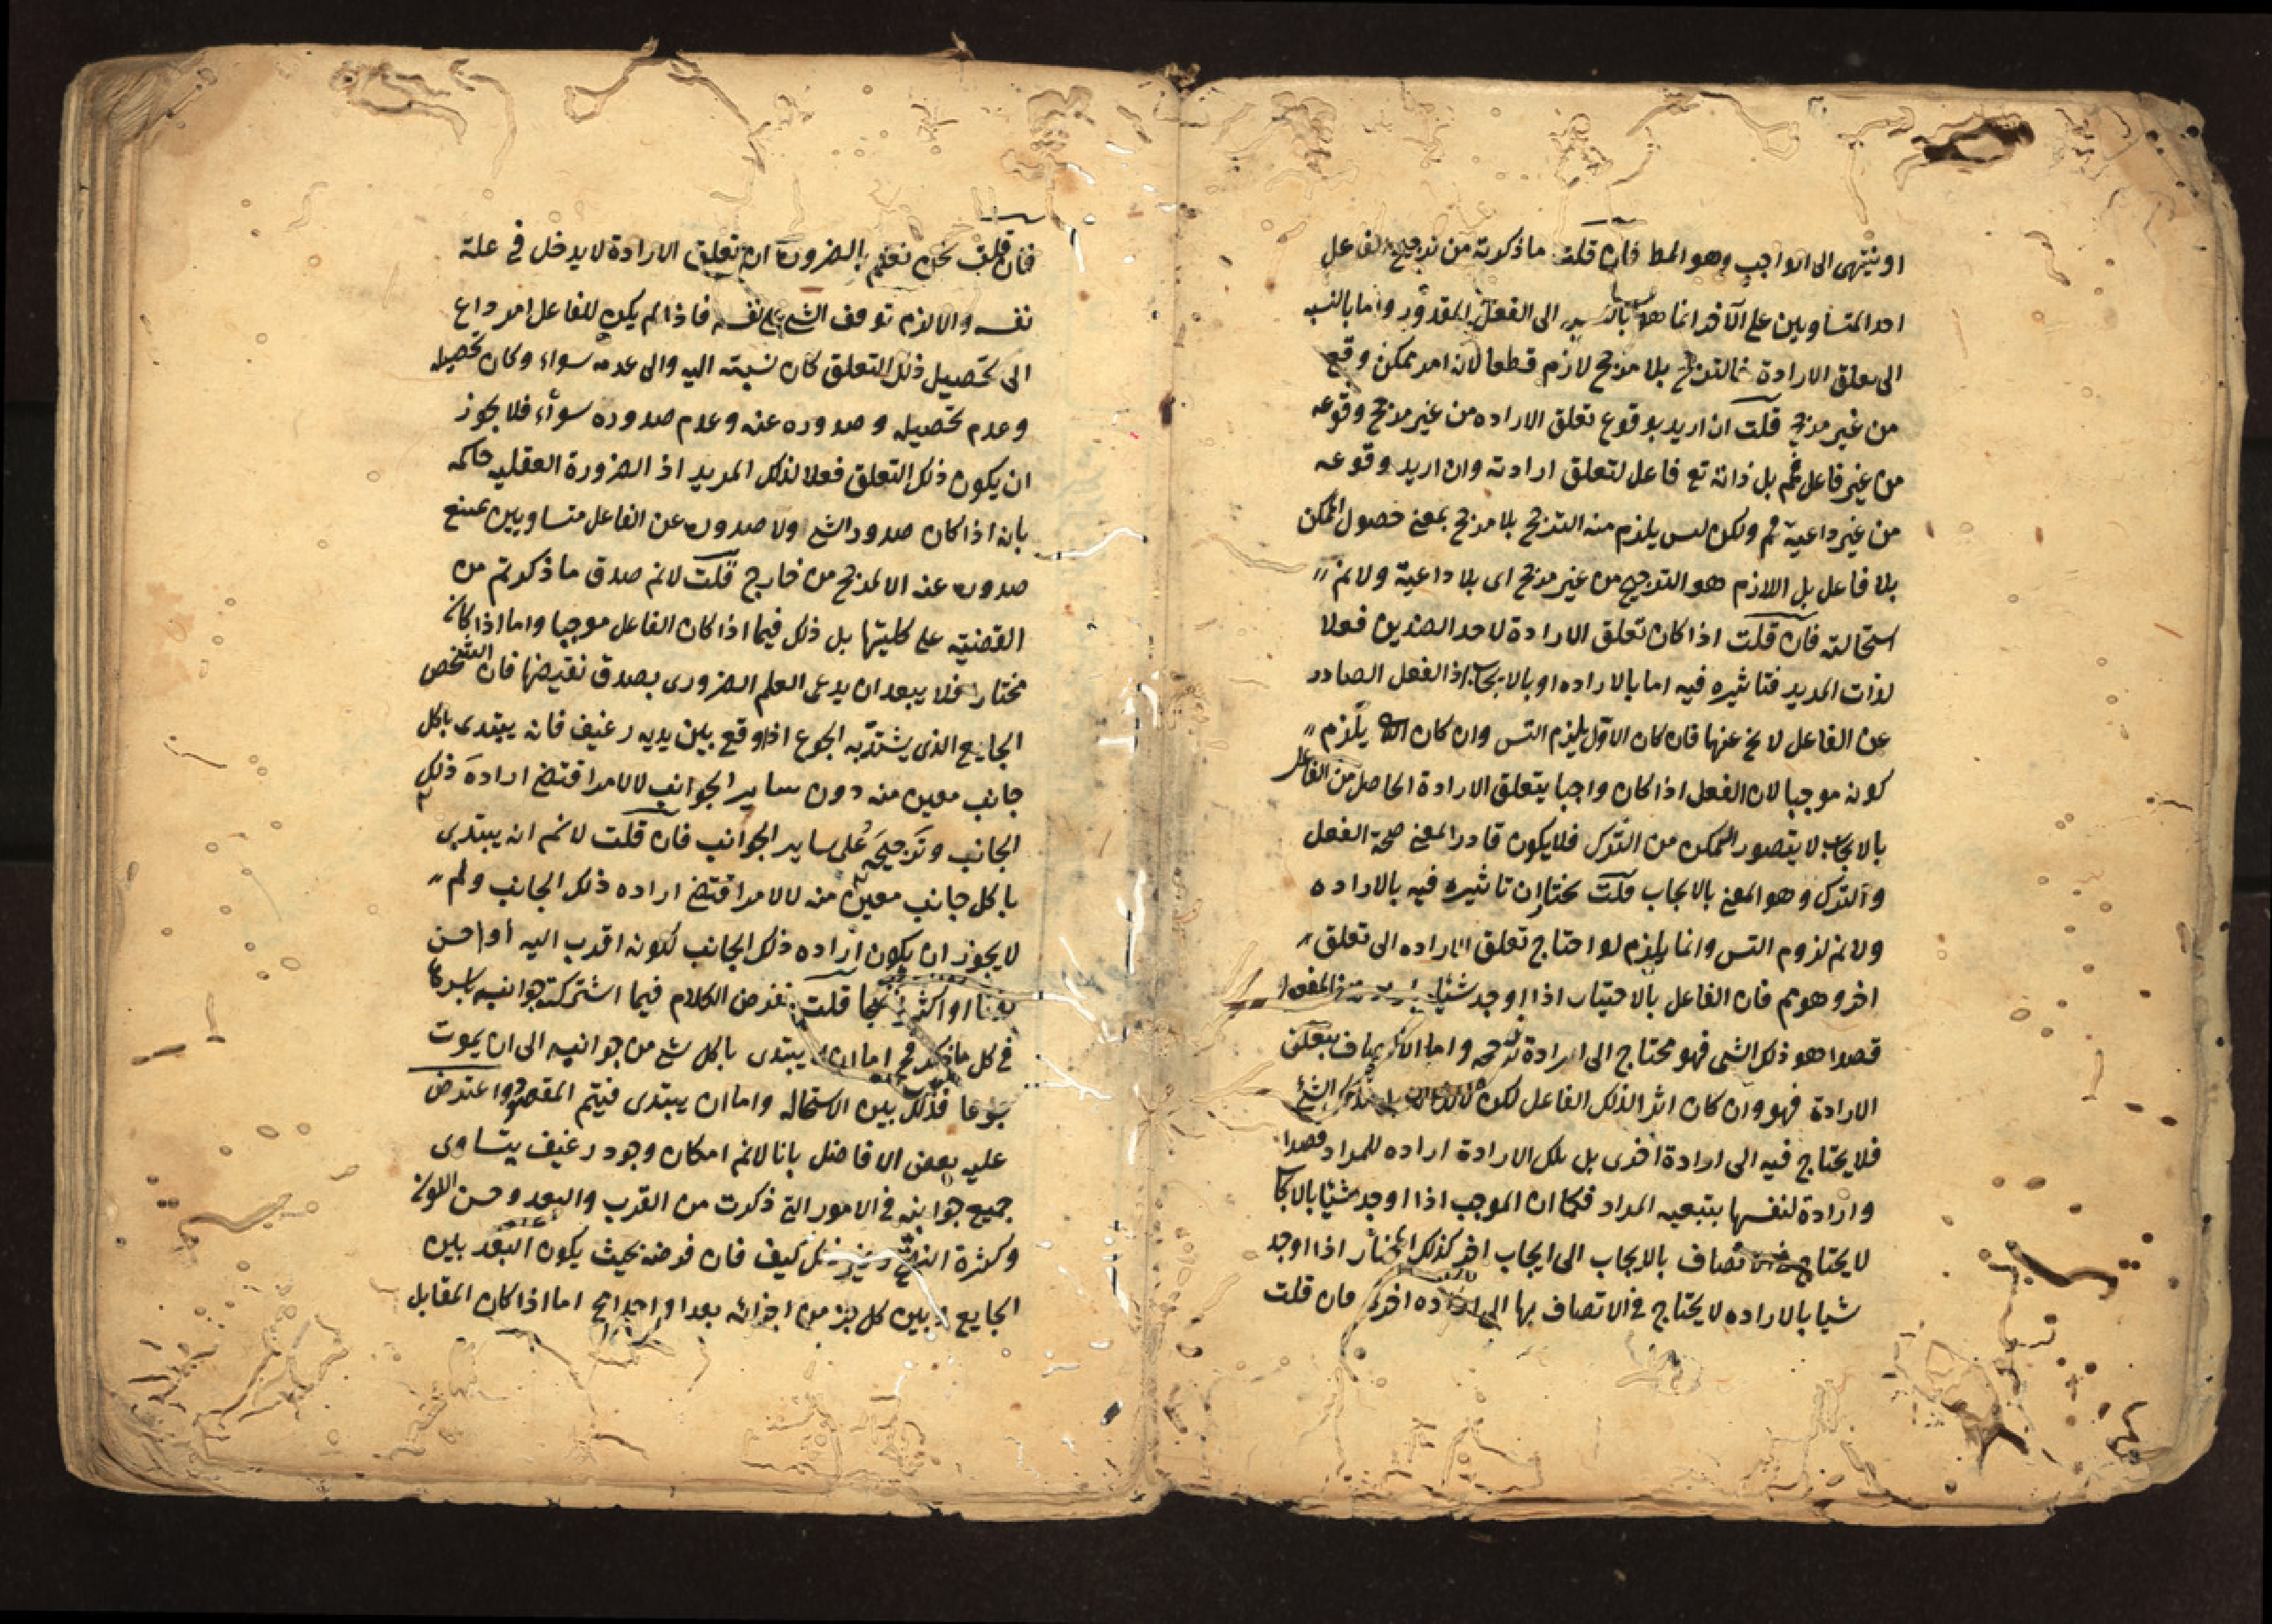 او ينتهى الى الواجب وهو المط فان قلت ما ذكرته من ترجيح الفاعل
احد المتساويين على الآخر انما هو بالنسبة الى الفعل المقدور واما بالنسبه
الى تعلق الارادة فالترجح بلا مرجح لازم قطعا لانه امر ممكن وقع
من غير مرجح قلت ان اريد بوقوع تعلق الاراده من غير مرجح وقوعه
من غير فاعل فمم بل ذاته تع فاعل لتعلق ارادته وان اريد وقوعه
من غير داعية فم ولكن ليس يلزم منه الترجح بلا مرجح بمعنى حصول الممكن
بلا فاعل بل اللازم هو الترجيح من غير مرجح اى بلا داعية ولا نم
استحالته فان قلت اذا كان تعلق الارادة لاحد الضدين فعلا
لذات المريد فتاثيره فيه اما بالاراده او بالايجاب اذ الفعل الصادر
عن الفاعل لا يخ عنها فان كان الاول يلزم التس وان كان يلزم
كونه موجبا لان الفعل اذا كان واجبا بتعلق الارادة الحاصل من الفاعل
بالايجاب لا يتصور التمكن من الترك فلا يكون قادرا بمعنى صحة الفعل
والترك وهو المعنى بالايجاب قلت نختار ان تاثيره فيه بالاراده
ولا نم لزوم التس وانما يلزم لو احتاج تعلق الاراده الى تعلق
اخر وهو مم فان الفاعل بالاختيار اذا اوجد شيئا
قصدا هو ذلك الشى فهو محتاج الى ارادة ترجحه واما الاتصاف بتعلق
الارادة فهو وان كان اثرا لذلك الفاعل لكن
فلا يحتاج فيه الى ارادة اخرى بل تلك الارادة اراده للمراد قصدا
وارادة لنفسها بتبعيه المراد فكما ان الموجب اذا اوجد شيئا بالايجاب
لا يحتاج اتصاف بالايجاب الى ايجاب اخر كذلك المختار اذا اوجد
شيا بالاراده لا يحتاج فى الاتصاف بها الى اراده اخرى فان قلت
فان قلت نحن نعلم بالضرورة ان تعلق الارادة لا يدخل فى علة
نفسه والا لزم توقف الشى على نفسه فاذا لم يكن للفاعل امر داع
الى تحصيل ذلك التعلق كان نسبته اليه والى عدمه سواء وكان تحصيله
وعدم تحصيله وصدوره عنه وعدم صدوره سواء فلا يجوز
ان يكون ذلك التعلق فعلا لذلك المريد اذ الضرورة العقليه حاكمه
بانه اذا كان صدور الشى ولا صدوره عن الفاعل متساويين يمتنع
صدوره عنه الا لمرجح من خارج قلت لا نم صدق ما ذكرتم من
القضية على كليتها بل ذلك فيما اذا كان الفاعل موجبا واما اذا كان
مختارا فلا يبعد ان يدعى العلم الضرورى بصدق نقيضها فان الشخص
الجايع الذى يشتد به الجوع اذا وقع بين يديه رغيف فانه يبتدى باكل
جانب معين منه دون ساير الجوانب لا لامر اقتضى ارادة ذلك
الجانب وترجيحه على ساير الجوانب فان قلت لا نم انه يبتدى
باكل جانب معين منه لا لامر اقتضى اراده ذلك الجانب ولم
لا يجوز ان يكون اراده ذلك الجانب لكونه اقرب اليه او احسن
لونا او اكثر نضجا قلت نفرض الكلام فيما اشتركت جوانبه باسرها
فى كل ما ذكر فح اما ان لا يبتدى باكل شى من جوانبه الى ان يموت
جوعا فذلك بين الاستحاله واما ان يبتدى فيتم المقصود واعترض
عليه بعض الافاضل بانا لا نم امكان وجود رغيف يتساوى
جميع جوانبه فى الامور التى ذكرت من القرب والبعد وحسن اللون
وكثرة النضج وغير ذلك كيف فان فرضه بحيث يكون البعد بين
الجايع وبين كل جزء من اجزائه بعدا واحدا مح اما اذا كان المقابل